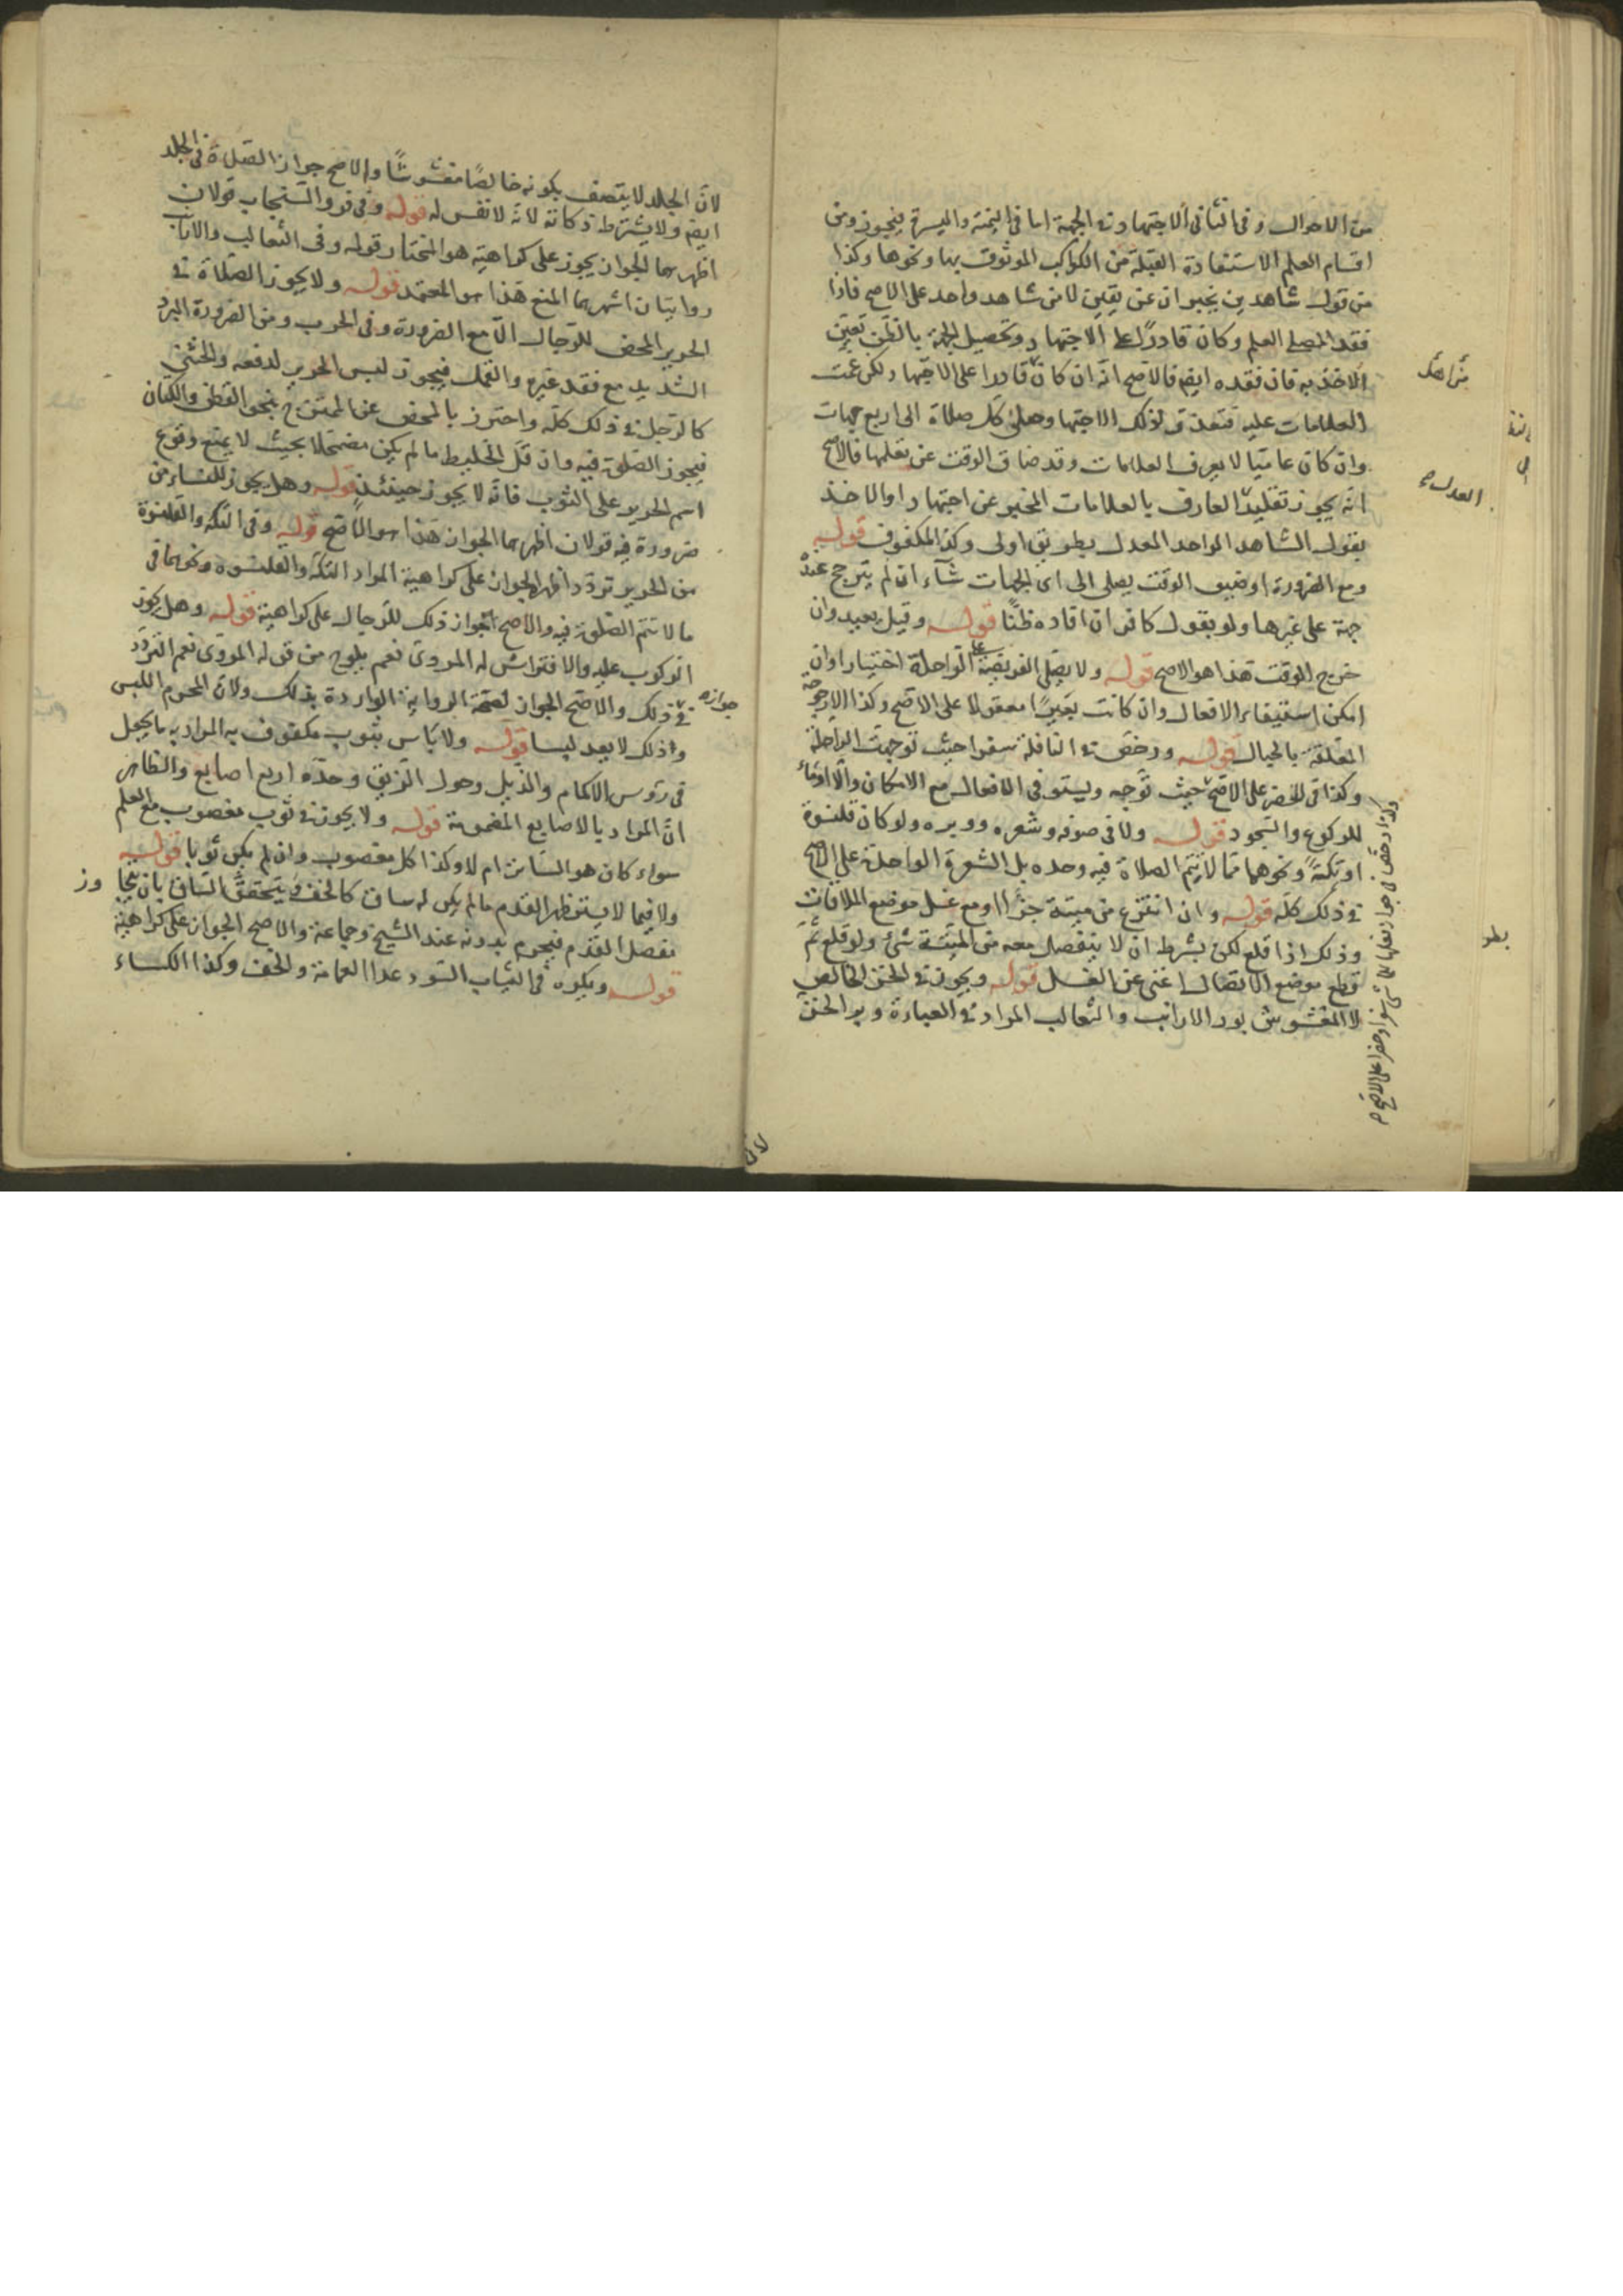 من الاحوال وفى الثانى الاجتهاد فى الجهة اما فى اليمنة واليسرة فيجوز ومن
اقسام العلم الاستفادة القبلة من الكواكب الموثوق بها ونحوها وكذا
من قول شاهدين يخبران عن يقين لا من شاهد واحد على الاصح فاذا
فقد المصلى العلم وكان قادرًا على الاجتهاد وتحصيل الجهة بالظن تعين
الاخذ به فان فقده ايضا فالاصح انه ان كان قادرا على الاجتهاد لكن غمت
العلامات عليه فتعذر لذلك الاجتهاد صلى كل صلاة الى اربع جهات
وان كان عاميا لا يعرف العلامات وقد ضاق الوقت عن تعلمها فالاصح
انه يجوز تقليد العارف بالعلامات المخبر عن اجتهاد اوالاخذ
بقول الشاهد الواحد المعدل بطريق اولى وكذا المكفوف قوله
ومع الضرورة او ضيق الوقت يصلى الى اى الجهات شآء ان لم يترجح عنده
جهة على غيرها ولو بقول كافر ان افاده ظنًا قوله وقيل يعيد وان
خرج الوقت هذا هو الاصح قوله ولا يصلى الفريضة على الراحلة اختيارا وان
امكن استيفاء الافعال وان كانت بعيرًا معقولا على الاصح وكذا الارجوحة
المعلقة بالحبال قوله ورخص فى النافلة سفرا حيث توجهت الراحلة
وكذا فى الحضر على الاصح حيث توجه ويستوفى الافعال مع الامكان والا اومأ
للركوع والسجود قوله ولا فى صوفه وشعره ووبره ولو كان قلنسوة
او تكةً ونحوهما مما لا يتم الصلاة فيه وحده بل الشعرة الواحدة على الاصح
فى ذلك كله قوله وان انتزع من ميتة جزًا او مع غسل موضع الملاقات
وذلك اذا قلع لكن بشرط ان لا ينفصل معه من الميتة شئ ولو قلع ثم
قطع موضع الاتصال اغنى عن الغسل قوله ويجوز فى الخز الخالص
لا المغشوش بوبر الارانب والثعالب المراد فى العبارة وبر الخز
العدل
لان
لان الجلد لا يتصف بكونه خالصًا مغشوشًا والاصح جواز الصلاة فى الجلد
ايضا ولا يشترط ذكاته لانه لا نفس له قوله وفى فرو السنجاب قولان
اظهرهما الجواز يجوز على كراهية هو المختار قوله وفى الثعالب والارانب
روايتان اشهرهما المنع هذا هو المعتمد قوله ولا يجوز الصلاة فى
الحرير المحض للرجال الا مع الضرورة وفى الحرب ومن الضرورة البرد
الشديد مع فقد غيره والقمل فيجوز لبس الحرير لدفعه والخنثى
كالرجل فى ذلك كله واحترز بالمحض عن الممتزج بنحو القطن والكتان
فيجوز الصلوة فيه وان قل الخليط ما لم يكن مضمحلا بحيث لا يمنع وقوع
اسم الحرير على الثوب فانه لا يجوز حينئذ قوله وهل يجوز للنساء من
ضرورة فيه قولان اظهرهما الجواز هذا هو الاصح قوله وفى التكة والقلنسوة
من الحرير تردد اظهره الجواز على كراهية المراد التكة والقلنسوة ونحوهما فى
ما لا تتم الصلوة فيه والاصح جواز ذلك للرجال على كراهية قوله وهل يجوز
الركوب عليه والافتراش له المروى نعم يلوح من قوله المروى نعم التردد
فى ذلك والاصح الجواز لصحة الرواية الواردة بذلك ولان المحرم اللبس
جوازه
وذلك لا يعد لبسا قوله ولا بأس بثوب مكفوف به المراد به ما يجعل
فى رؤس الاكمام والذيل وحول الزيق وحده اربع اصابع والظاهر
ان المراد بالاصابع المضمومة قوله ولا يجوز فى ثوب مغصوب مع العلم
سواء كان هو الساتر ام لا وكذا كل مغصوب وان لم يكن ثوبا قوله
ولا فيما لا يستر ظهر القدم ما لم يكن له ساق كالخف ويتحقق الساق بان يتجاوز
مفصل القدم فيحرم بدونه عند الشيخ وجماعة والاصح الجواز على كراهية
قوله ويكره فى الثياب السود عدا العمامة والخف وكذا الكساء